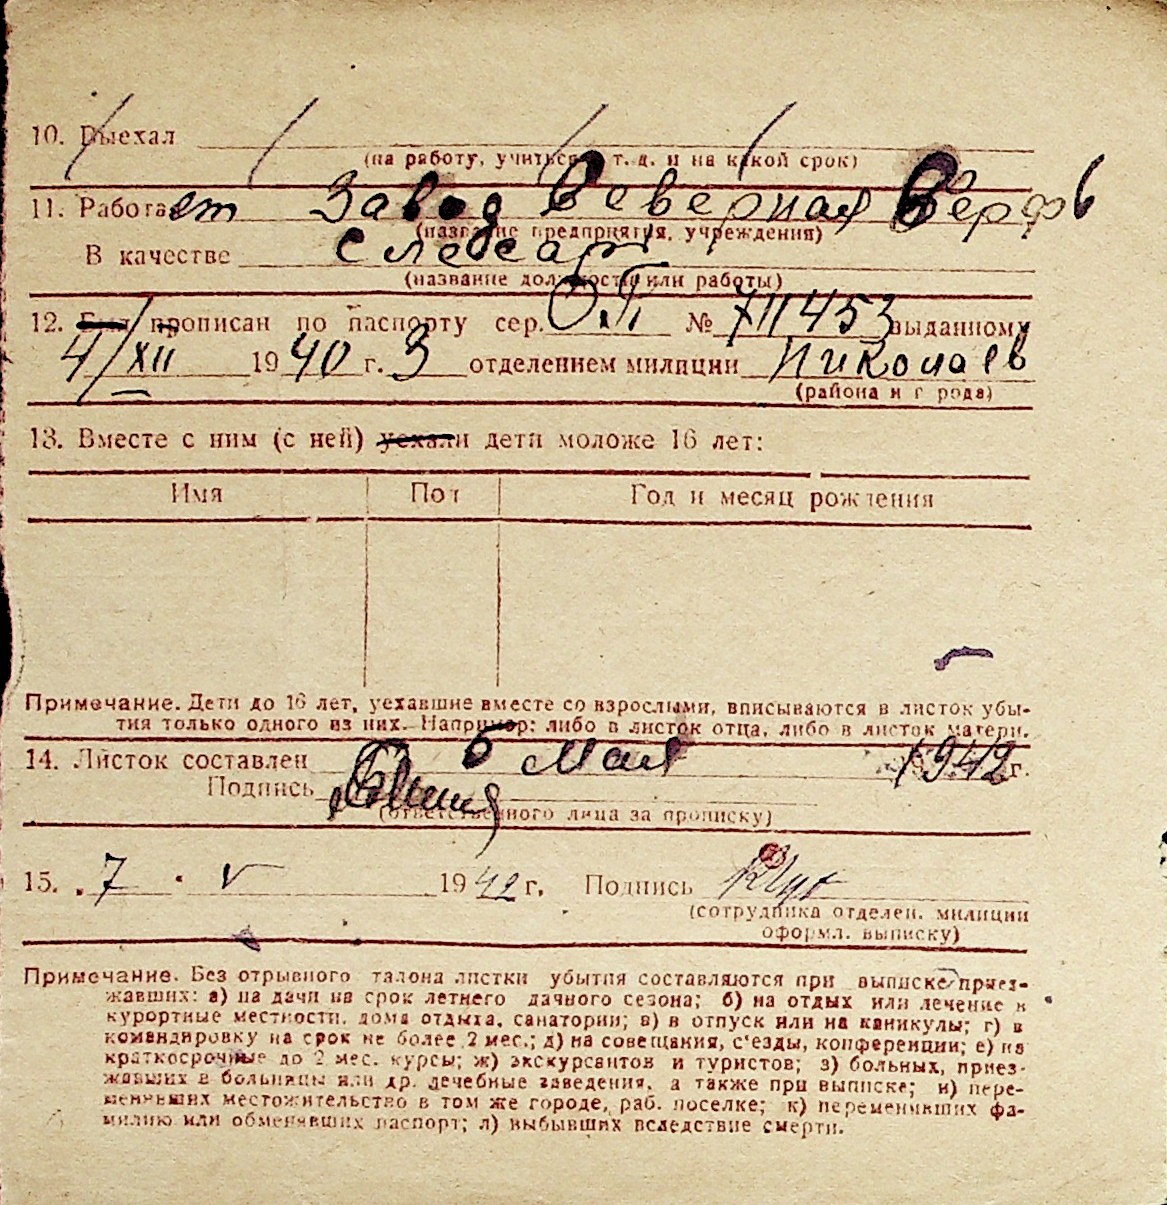 10. Выехал
(на работу, учиться и т. д. и на какой срок)
11. Работает Завод Северная Верфь
(название предприятия, учреждения)
В качестве слесарь
(название должности или работы)
12. Был прописан по паспорту сер. ОП № 711453 выданному
4/XII 1940 г. 3 отделением милиции Николаев
(района и города)
13. Вместе с ним (с ней) уехали дети моложе 16 лет:
Имя Пол Год и месяц рождения
Примечание. Дети до 16 лет, уехавшие вместе со взрослыми, вписываются в листок убы-
тия только одного из них. Например: либо в листок отца, либо в листок матери.
14. Листок составлен 6 мая 1942 г.
Подпись
(ответственного лица за прописку)
15. „7 " V 1942 г. Подпись
(сотрудника отделен. милиции
оформл. выписку)
Примечание. Без отрывного талона листки убытия составляются при выписке приез-
жавших: а) на дачи на срок летнего дачного сезона; б) на отдых или лечение в
курортные местности, дома отдыха, санатории; в) в отпуск или на каникулы; г) в
командировку на срок не более 2 мес.; д) на совещания, с'езды, конференции; е) на
краткосрочные до 2 мес. курсы; ж) экскурсантов и туристов; з) больных, приез-
жавших в больницы или др. лечебные заведения, а также при выписке; и) пере-
менивших местожительство в том же городе, раб. поселке; к) переменивших фа-
милию или обменявших паспорт; л) выбывших вследствие смерти.